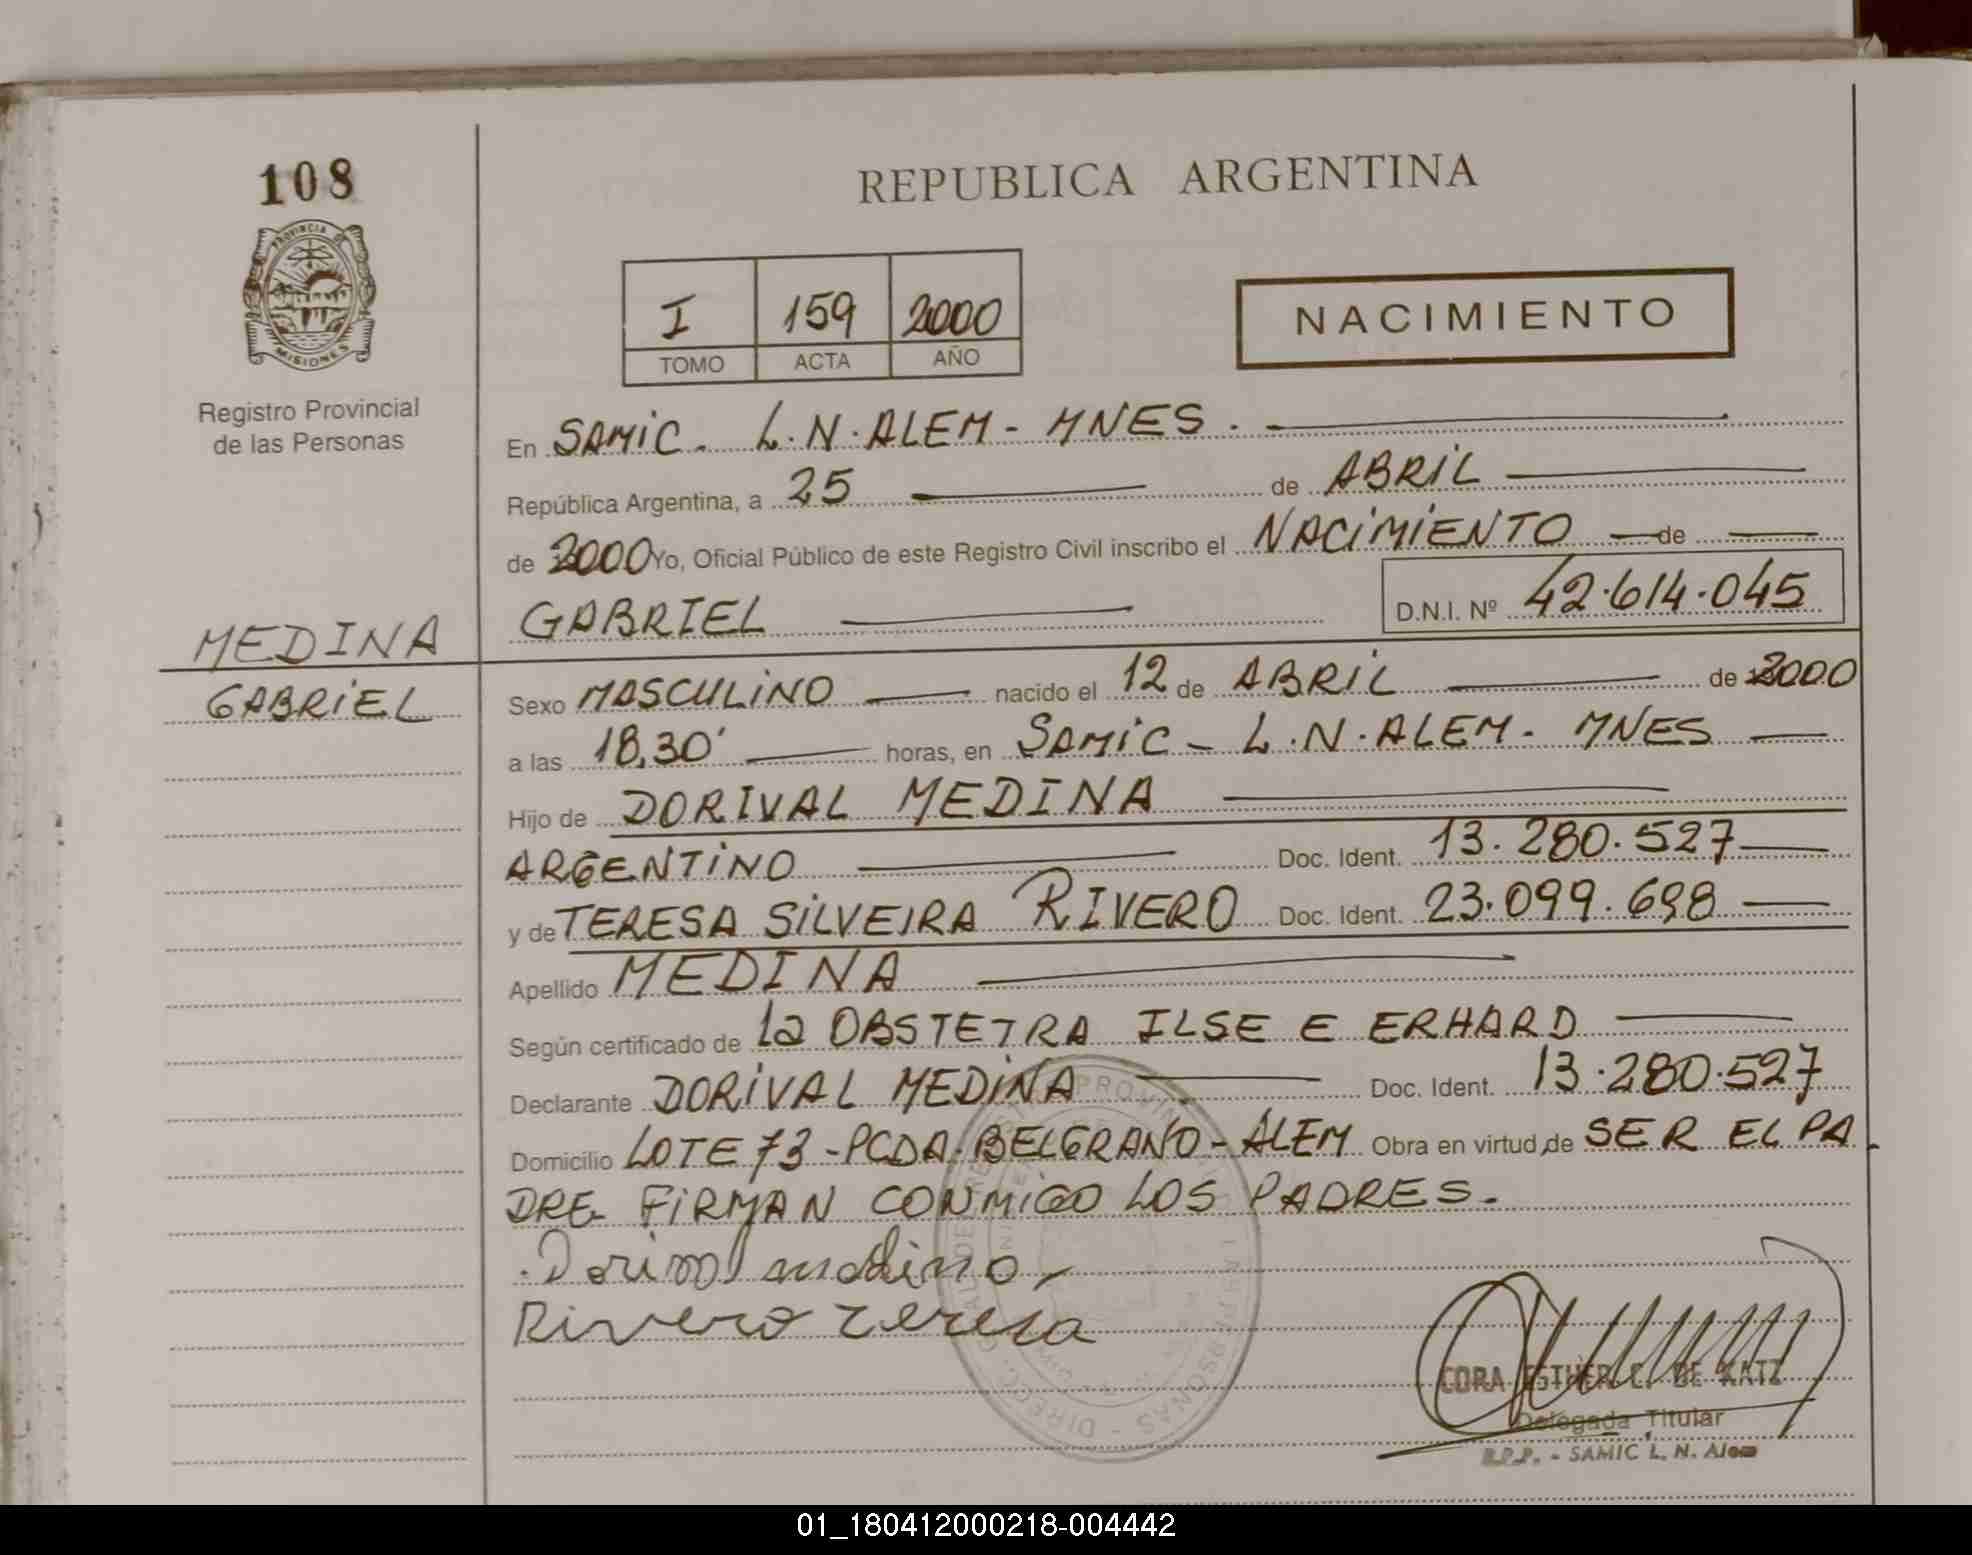 108
PROVINCIA DE
MISIONES
Registro Provincial
de las Personas
MEDINA
GABRIEL
REPUBLICA ARGENTINA
I 159 2000
TOMO ACTA AÑO
NACIMIENTO
En SAMIC. L.N.ALEM - MNES.
República Argentina, a 25 de ABRIL
de 2000 Yo, Oficial Público de este Registro Civil inscribo el NACIMIENTO de
GABRIEL D.N.I. Nº 42.614.045
Sexo MASCULINO nacido el 12 de ABRIL de 2000
a las 18,30' horas, en SAMIC - L.N.ALEM. MNES
Hijo de DORIVAL MEDINA
ARGENTINO Doc. Ident. 13.280.527
y de TERESA SILVEIRA RIVERO Doc. Ident. 23.099.698
Apellido MEDINA
Según certificado de la OBSTETRA ILSE E ERHARD
Declarante DORIVAL MEDINA Doc. Ident. 13.280.527
Domicilio LOTE 73 - PCDA. BELGRANO - ALEM Obra en virtud de SER EL PA
DRE FIRMAN CONMIGO LOS PADRES.
Dorival medina
Rivero Teresa
CORA ESTHER C. DE KATZ
Delegada Titular
R.P.P. - SAMIC L. N. Alem
01_180412000218-004442